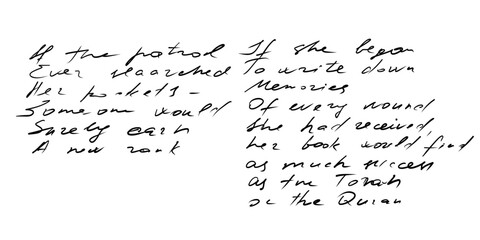 If the patrol
Ever searched
Her pockets -
Someone would
Surely earn
A new rank
If she began
To write down
Memories
Of every wound
She had received,
her book would find
as much success
as the Torah
or the Quran